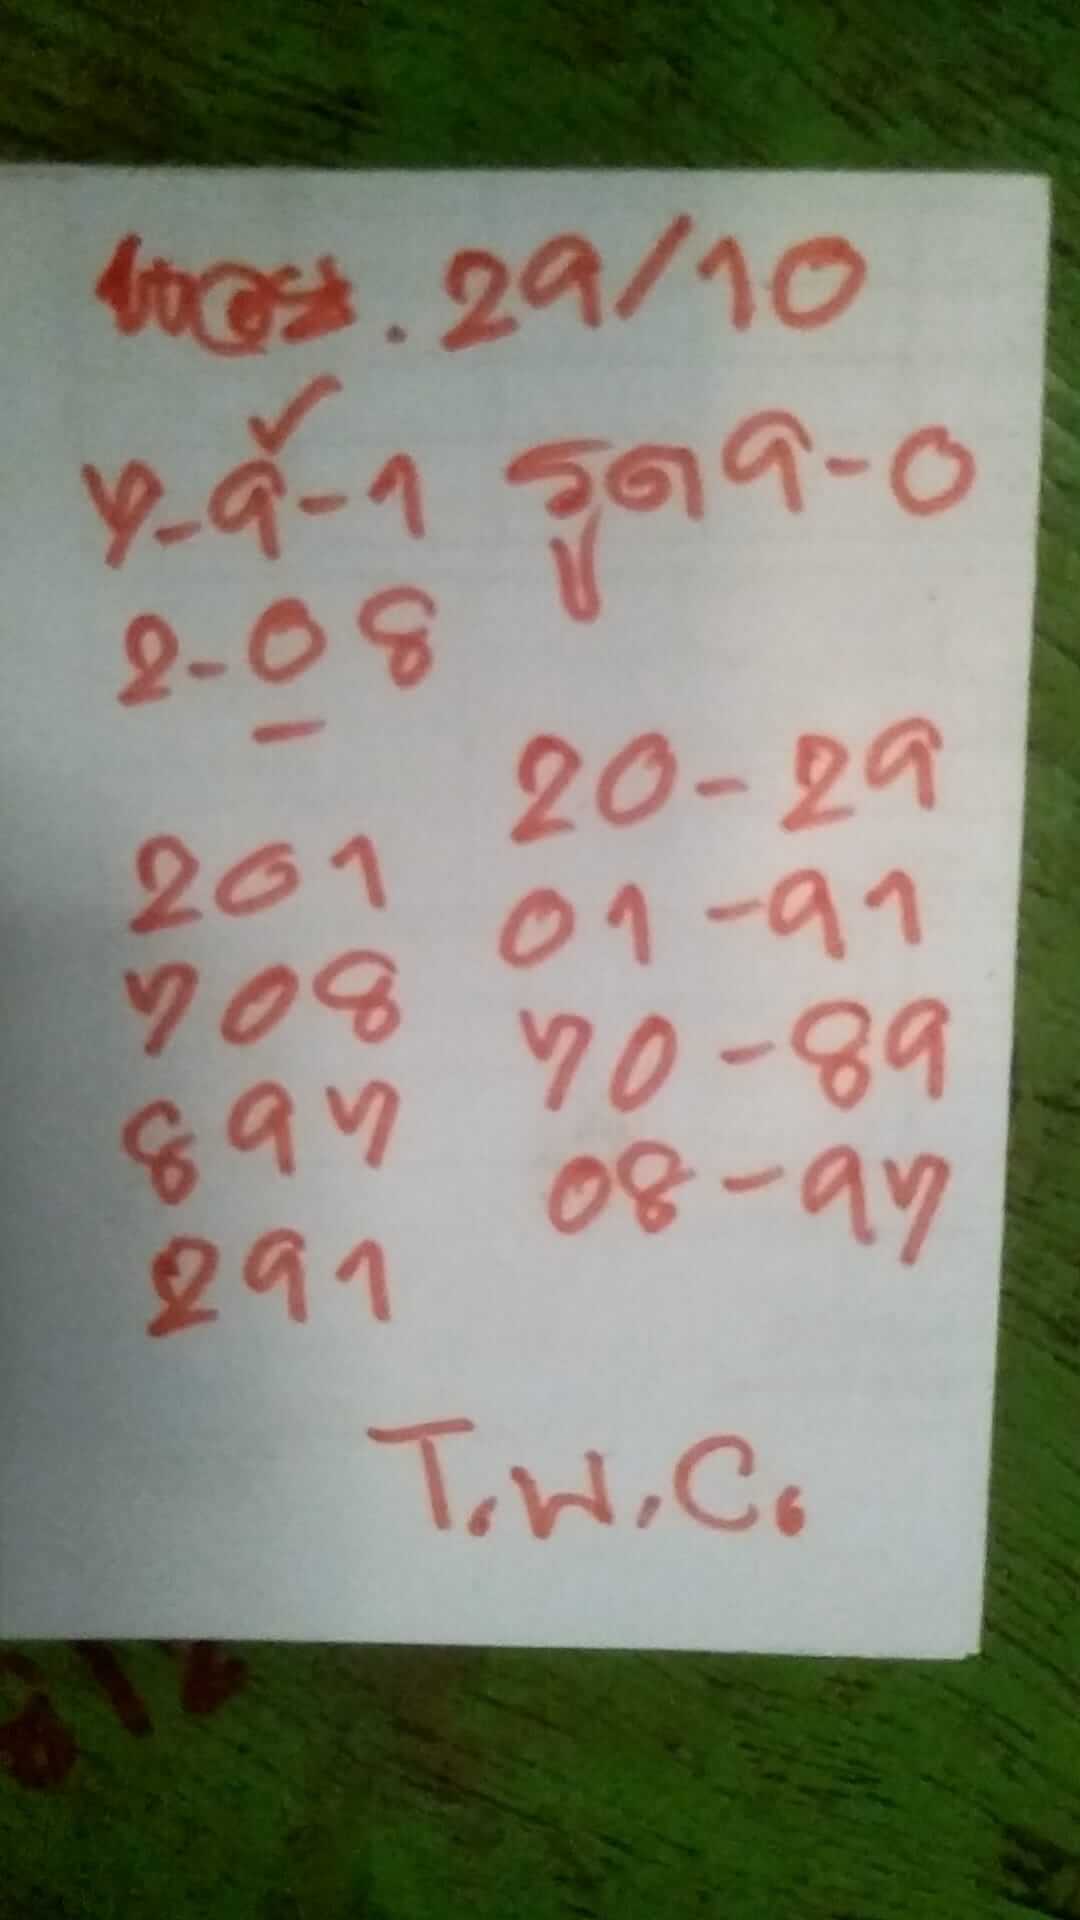 29/10
7-9-1 รูด 9-0
2-08
20-29
201
01-91
708
70-89
897
08-97
291
T.W.C.